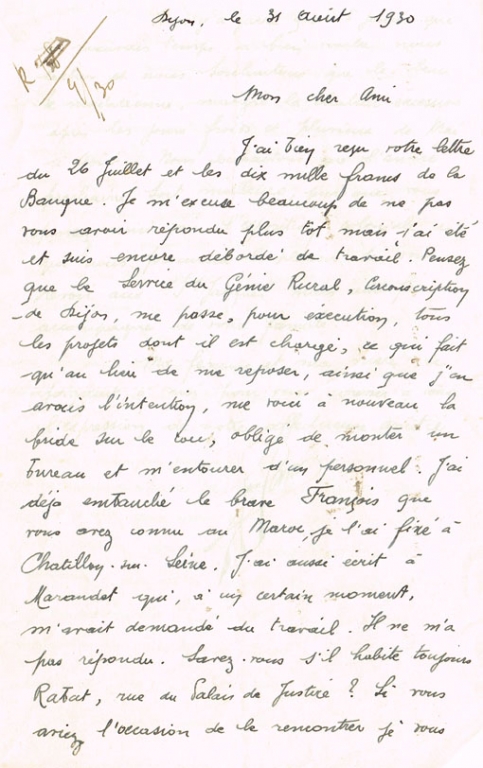 Dijon, le 31 Août 1930
R
4/30
Mon cher Ami
J'ai bien reçu votre lettre
du 26 Juillet et les dix mille francs de la
Banque. Je m'excuse beaucoup de ne pas
vous avoir répondu plus tôt mais j'ai été
et suis encore débordé de travail. Pensez
que le Service du Génie Rural, Circonscription
de Dijon, me passe, pour exécution, tous
les projets dont il est chargé, ce qui fait
qu'au lieu de me reposer, ainsi que j'en
avais l'intention, me voici à nouveau la
bride sur le cou, obligé de monter un
bureau et m'entourer d'un personnel. J'ai
déjà embauché le brave François que
vous avez connu au Maroc, je l'ai fixé à
Chatillon-sur-Seine. J'ai aussi écrit à
Marandet qui, à un certain moment,
m'avait demandé du travail. Il ne m'a
pas répondu. Savez-vous s'il habite toujours
Rabat, rue du Palais de Justice ? Si vous
aviez l'occasion de le rencontrer je vous